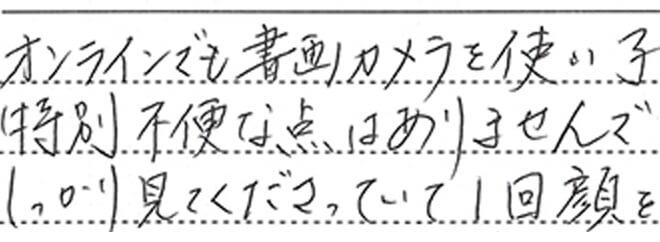 オンラインでも書画カメラを使い子
特別不便な点はありませんで
しっかり見てくださっていて1回顔を